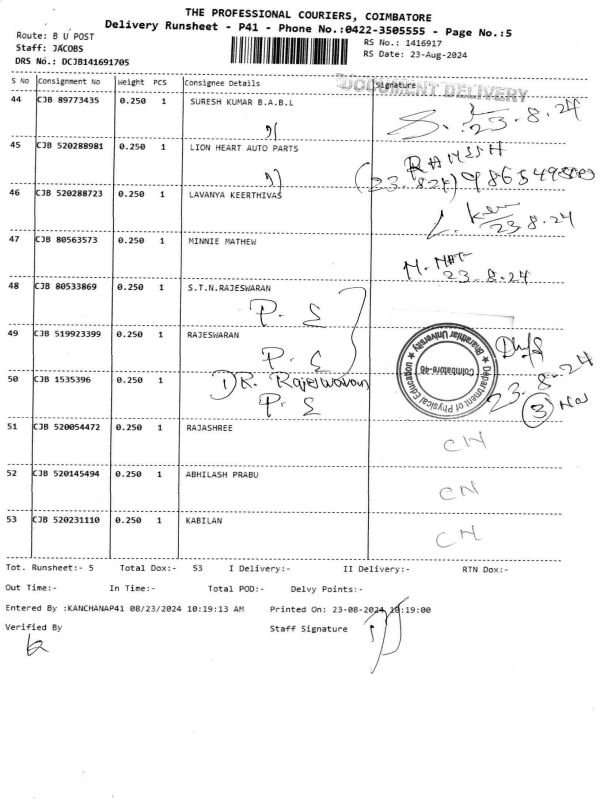 THE PROFESSIONAL COURIERS, COIMBATORE
Delivery Runsheet - P41 - Phone No.:0422-3505555 - Page No.:5
Route: B U POST
RS No.: 1416917
Staff: JACOBS
RS Date: 23-Aug-2024
DRS No.: DCJB141691705
DOCUMENT DELIVERY
S No Consignment No Weight PCS Consignee Details Signature
44 CJB 89773435 0.250 1 SURESH KUMAR B.A.B.L 23.8.24
45 CJB 520288981 0.250 1 LION HEART AUTO PARTS RAMESH
(23.824)
46 CJB 520288723 0.250 1 LAVANYA KEERTHIVAS 23.8.24
47 CJB 80563573 0.250 1 MINNIE MATHEW 23.8.24
48 CJB 80533869 0.250 1 S.T.N.RAJESWARAN
P. S
49 CJB 519923399 0.250 1 RAJESWARAN
P. S
Department of Physical Education
Bharathiar University
Coimbatore-46
23.8.24
3 Nos
50 CJB 1535396 0.250 1 DR. Rajeswaran
P. S
51 CJB 520054472 0.250 1 RAJASHREE CN
52 CJB 520145494 0.250 1 ABHILASH PRABU CN
53 CJB 520231110 0.250 1 KABILAN CN
Tot. Runsheet:- 5 Total Dox:- 53 I Delivery:- II Delivery:- RTN Dox:-
Out Time:- In Time:- Total POD:- Delvy Points:-
Entered By :KANCHANAP41 08/23/2024 10:19:13 AM Printed On: 23-08-2024 10:19:00
Verified By Staff Signature